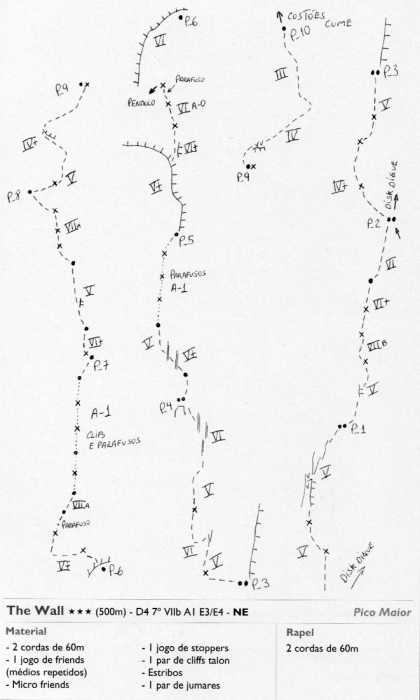 P.6
VI
PARAFUSO
PÊNDULO
VI A-0
VII+
VI
P.5
PARAFUSOS
A-1
V
VI
P.4
VI
V
VI
V
P.3
P.9
IV+
V
P.8
VIIA
V
VII+
P.7
A-1
CLIFS
E PARAFUSOS
VIIA
PARAFUSO
V+
P.6
COSTÕES
CUME
P.10
III
IV
P.9
P.3
V
IV+
DISK DIQUE
P.2
VI
VI+
VIIB
V
P.1
V
V
DISK DIQUE
The Wall ★★★ (500m) - D4 7º VIIb A1 E3/E4 - NE
Pico Maior
Material
- 2 cordas de 60m
- 1 jogo de friends
(médios repetidos)
- Micro friends
- 1 jogo de stoppers
- 1 par de cliffs talon
- Estribos
- 1 par de jumares
Rapel
2 cordas de 60m